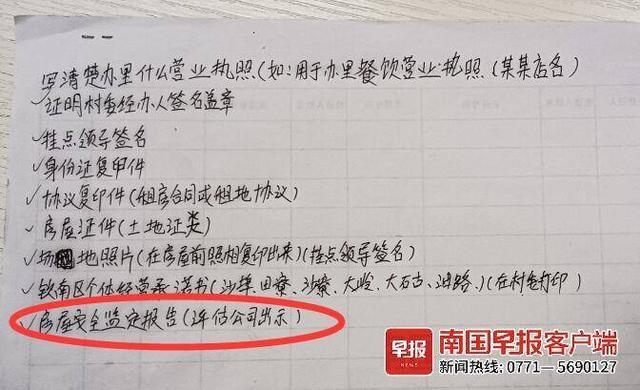 写清楚办里什么营业执照(如:用于办里餐饮营业执照(某某店名)
✓证明村委经办人签名盖章
✓挂点领导签名
✓身份证复印件
✓协议复印件(租房合同或租地协议)
✓房屋证件(土地证类)
✓场地照片(在房屋前照相复印出来)(挂点领导签名)
✓钦南区个体经营承诺书(沙埠、田寮、沙寮、大岭、大石古、)(在村委打印)
✓房屋安全监定报告(评估公司出示)
早报 南国早报客户端
新闻热线:0771—5690127